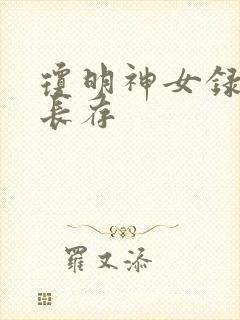 琼明神女録
長存
羅又添